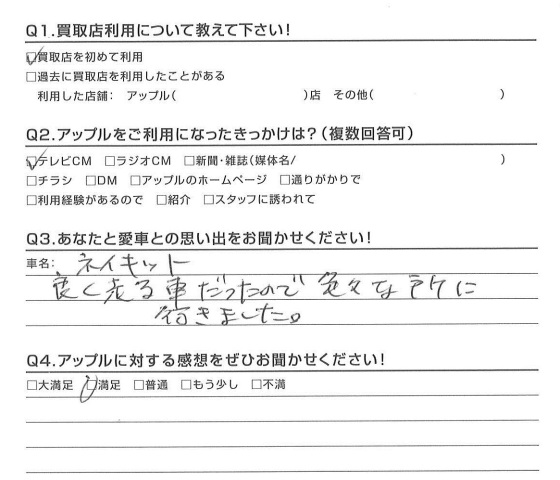 Q1.買取店利用について教えて下さい!
☑買取店を初めて利用
□過去に買取店を利用したことがある
利用した店舗: アップル( )店 その他( )
Q2.アップルをご利用になったきっかけは?(複数回答可)
☑テレビCM □ラジオCM □新聞・雑誌(媒体名/ )
□チラシ □DM □アップルのホームページ □通りがかりで
□利用経験があるので □紹介 □スタッフに誘われて
Q3.あなたと愛車との思い出をお聞かせください!
車名: ネイキット
良く走る車だったので色々な
行きました。
Q4.アップルに対する感想をぜひお聞かせください!
□大満足 ☑満足 □普通 □もう少し □不満